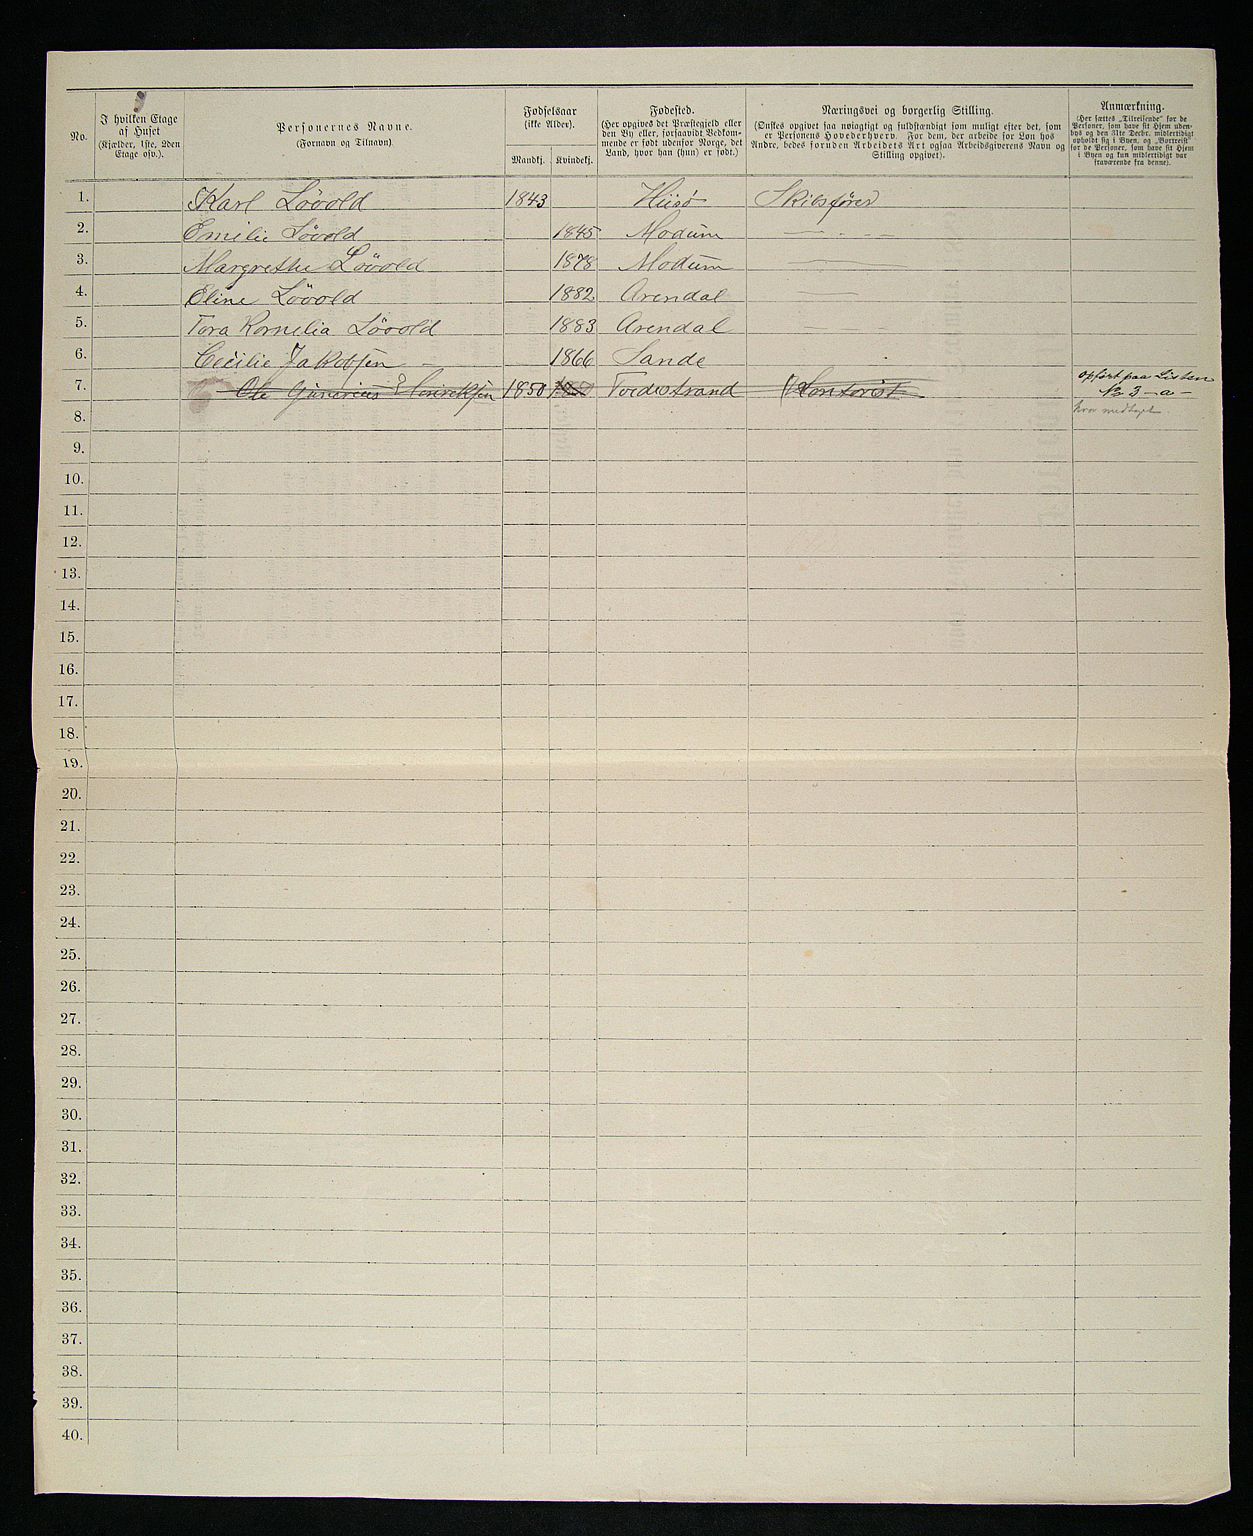 No.
I hvilken Etage
af Huset
(Kjælder, 1ste, 2den
Etage osv.).
Personernes Navne.
(Fornavn og Tilnavn).
Fødselsaar
(ikke Alder).
Mandkj. Kvindekj.
Fødested.
(Her opgives det Præstegjeld eller
den By eller, forsaavidt Vedkom-
mende er født udenfor Norge, det
Land, hvor han (hun) er født.)
Næringsvei og borgerlig Stilling.
(Ønskes opgivet saa nøiagtigt og fuldstændigt som muligt efter det, som
er Personens Hovederhverv. For dem, der arbeide for Løn hos
Andre, bedes foruden Arbeidets Art ogsaa Arbeidsgiverens Navn og
Stilling opgivet).
Anmærkning.
(Her sættes „Tilreisende“ for de
Personer, som have sit Hjem uden-
bys og den 31te Decbr. midlertidigt
opholdt sig i Byen, og „Bortreist“
for de Personer, som have sit Hjem
i Byen og kun midlertidigt var
fraværende fra denne).
1. Karl Lövold 1843 Hisö Skibsfører
2. Emilie Lövold 1845 Modum — . — —
3. Margrethe Lövold 1878 Modum
4. Eline Lövold 1882 Arendal
5. Tora Kornelia Lövold 1883 Arendal
6. Cecilie Jakobsen 1866 Sande
7. Ole Gunerius Henriksen 1850 Tvedestrand Kontorist opført paa Listen
No 3 – a –
hvor medtaget
8.
9.
10.
11.
12.
13.
14.
15.
16.
17.
18.
19.
20.
21.
22.
23.
24.
25.
26.
27.
28.
29.
30.
31.
32.
33.
34.
35.
36.
37.
38.
39.
40.